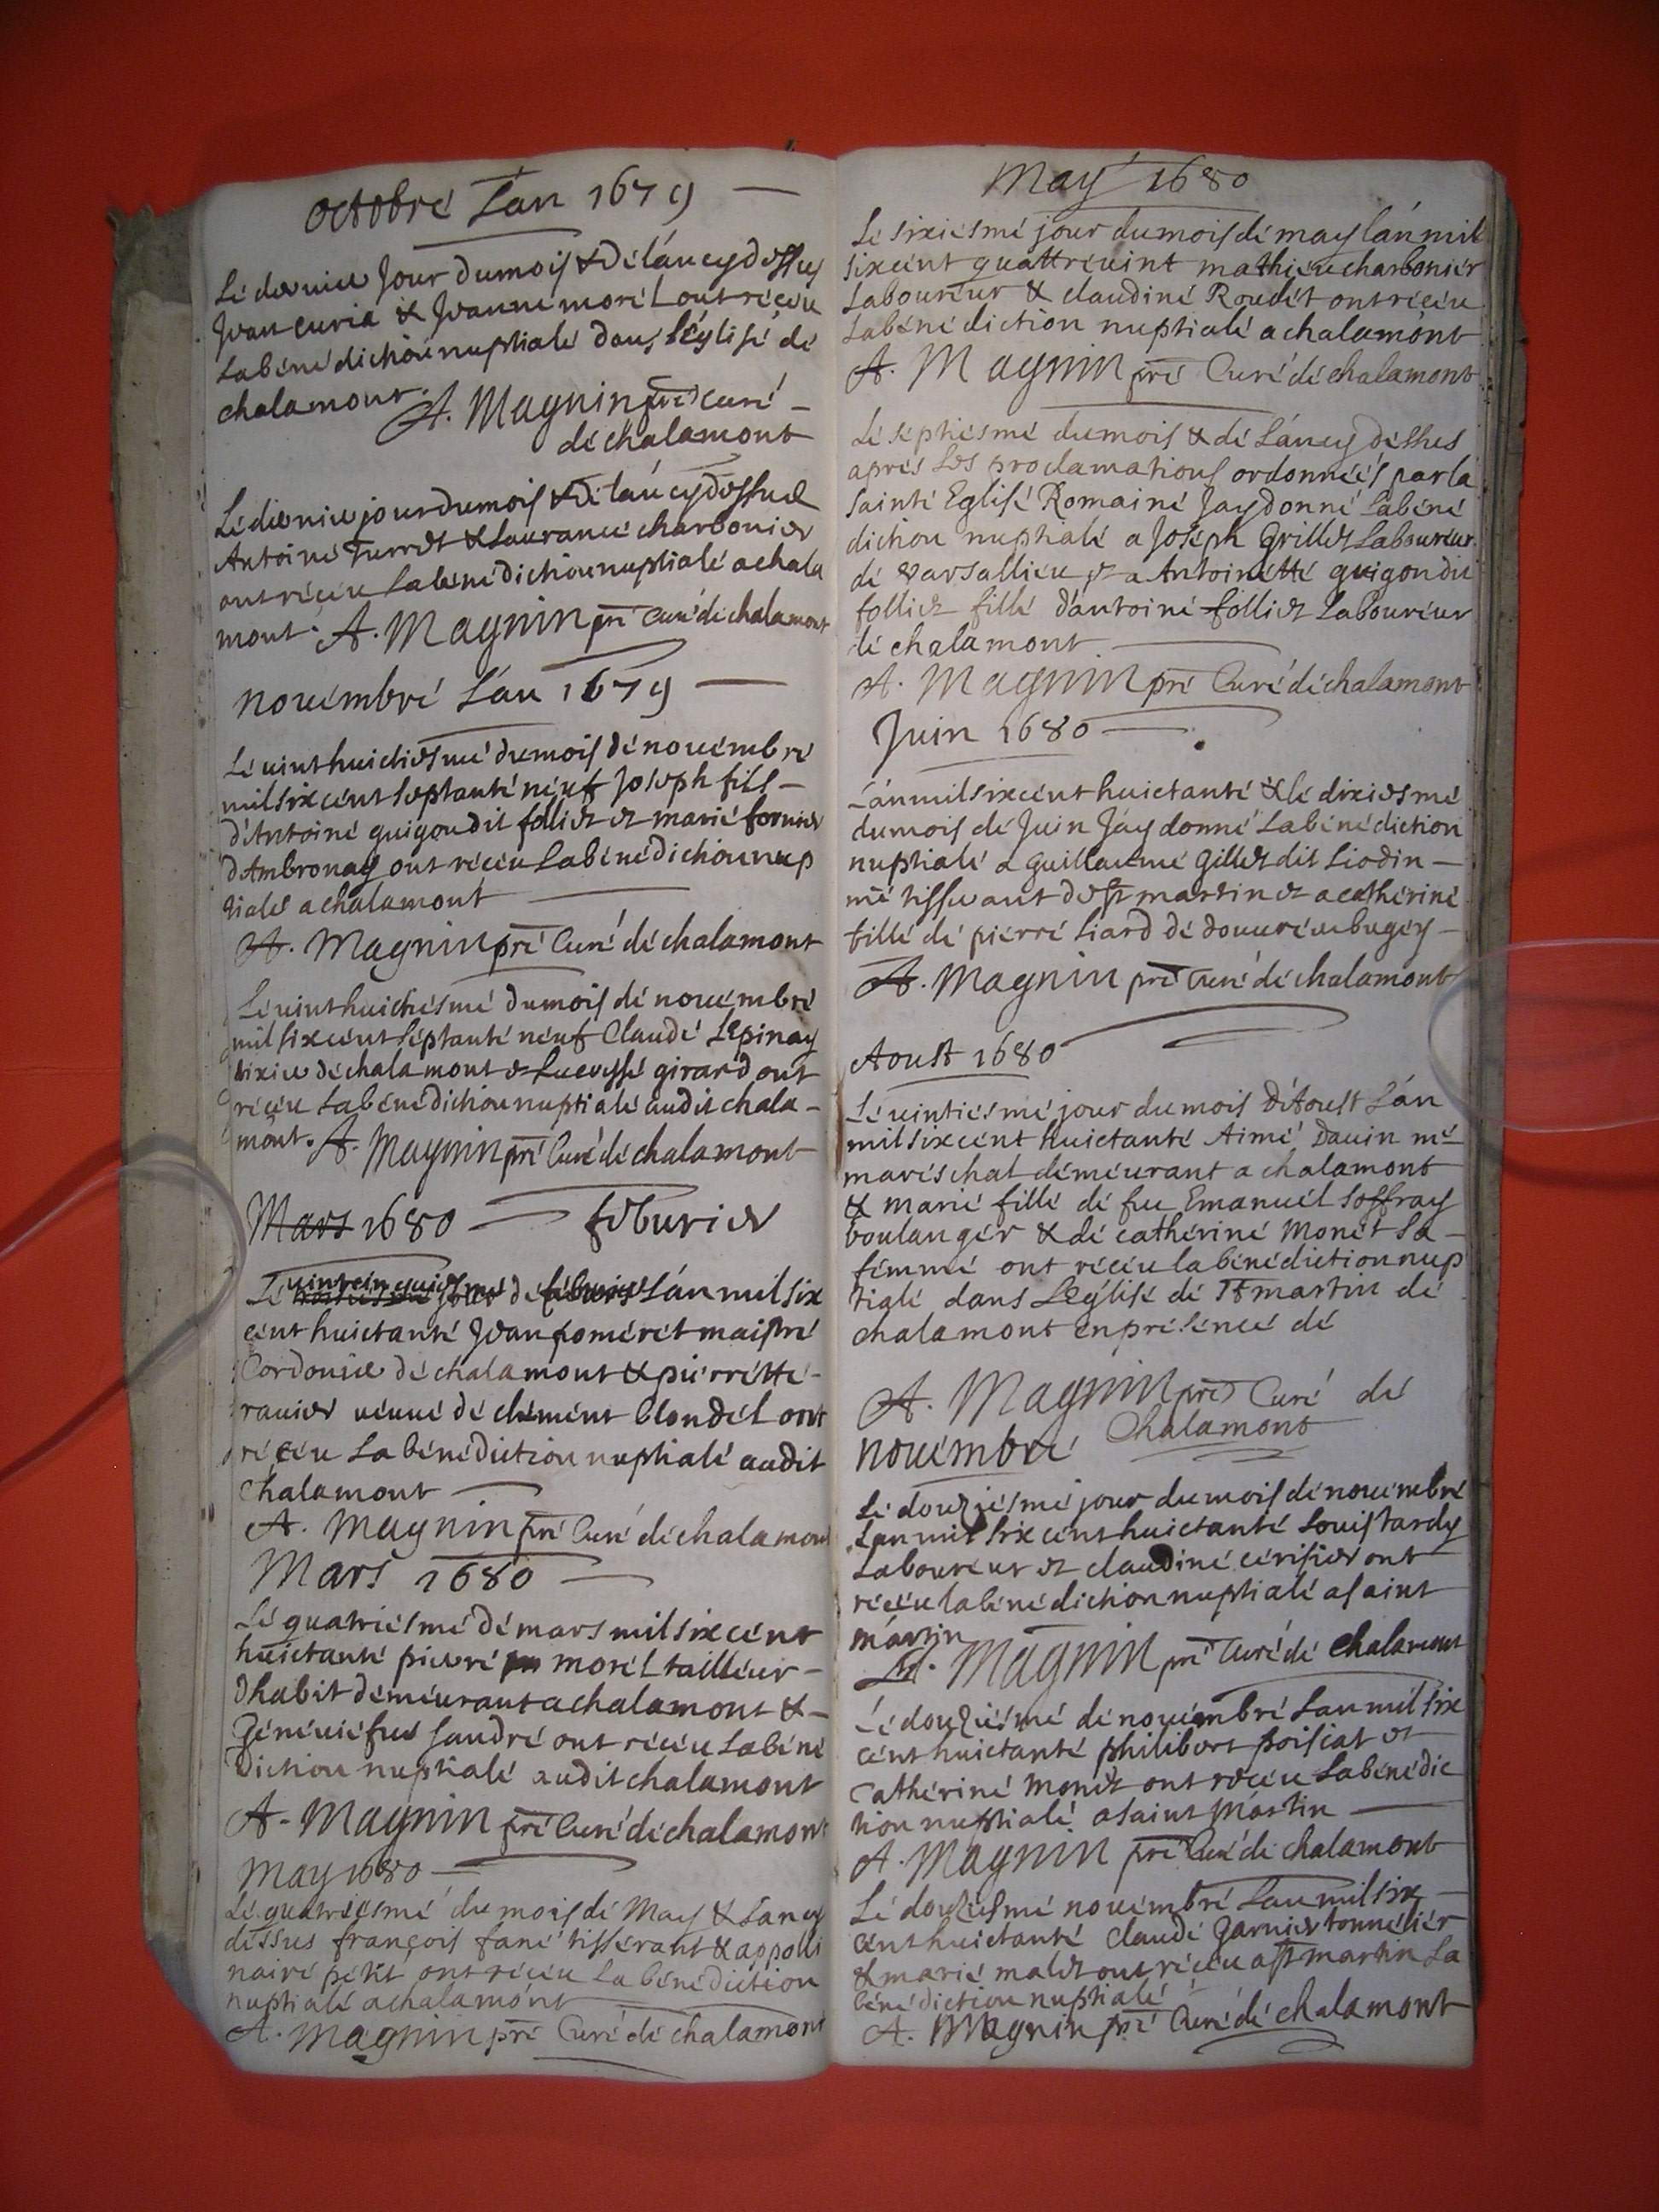 Octobre L'an 1679
Le dernier Jour du mois & de l'an cy dessus
Jean curia & Jeanne morel ont réceu
La bénédiction nuptiale dans l'églisé dé
chalamont.
A. Magnin prê curé
dé chalamont
Lé dernier jour du mois & dé l'an cy dessus
Antoiné Turret & Laurancé charbonier
ont récéu La bénédiction nuptialé a chala
mont. A. Magnin prê Curé dé chalamont
novémbré L'an 1679
Lé vint huictiesmé du mois dé novémbré
mil six cént séptanté néuf Joseph fils
d'Antoiné guigon dit folliet et marié fornier
d'Ambronay ont récéu La bénédiction nup
tiale a chalamont
A. Magnin prê Curé dé chalamont
Lé vint huictiésmé du mois dé novémbré
mil six cént séptanté néuf Claudé Lépinay
tixier dé chalamont & Lucressé girard ont
récéu La bénédiction nuptialé audit chala-
mont. A. Magnin prê Curé dé chalamont
Mars 1680 féburier
Lé vint cinquiesmé jour dé féburier L'án mil six
cént huictanté Jean poméret maistré
Cordonier dé chalamont & piérrétté
ranier véuvé dé clémént blondél ont
récéu La bénédiction nuptialé audit
chalamont
A. Magnin prê Curé dé chalamont
Mars 1680
Lé quatriésmé dé mars mil six cént
huictanté piérré morél tailléur
d'habit déméurant a chalamont &
Généuiéfué Jandré ont récéu La béné
diction nuptialé audit chalamont
A. Magnin prê Curé dé chalamont
May 1680
Lé quatriésmé du mois dé May & L'an cy
déssus françois fané tissérant & appolli
nairé pétit ont récéu La bénédiction
nuptialé a chalamont
A. Magnin prê Curé dé chalamont
May 1680
Lé sixiésmé jour du mois dé may l'án mil
six cént quattré vint mathiéu charboniér
Labouréur & claudiné Roudét ont récéu
La bénédiction nuptialé a chalamont
A. Magnin prê Curé dé chalamont
Lé séptiésmé du mois & dé L'án cy déssus
aprés Lés proclamations ordonnéés par la
sainté Eglisé Romainé J'ay donné La béné
diction nuptialé a Joséph Grillet Labouréur
dé varsalliéu et a Antoinétté guigon du
folliet fillé d'antoiné folliet Labouréur
dé chalamont
A. Magnin prê Curé dé chalamont
Juin 1680
L'án mil six cént huictanté & lé dixiesmé
du mois dé Juin J'ay donné La bénédiction
nuptialé a guillaumé Gillet dit Liodin
mê tissérant dé st martin et a cathériné
fillé dé piérré Liard dé douuré en bugéy
A. Magnin prê Curé dé chalamont
Aoust 1680
Lé vintiésmé jour du mois d'Aoust L'án
mil six cént huictanté Aimé Dauin mê
maréschal déméurant a chalamont
& marié fillé dé feu Emanuél Soffray
boulangér & dé cathériné Monét Sa
fémmé ont récéu la bénédiction nup
tialé dans L'églisé dé St martin dé
chalamont en présencé dé
A. Magnin prê Curé dé
Chalamont
novémbré
Lé douziésmé jour du mois dé novémbré
L'an mil six cént huictanté Louis tardy
Labouréur et claudiné cérisier ont
récéu la bénédiction nuptialé a saint
martin
A. Magnin prê Curé dé chalamont
Lé douziésmé dé novémbré L'an mil six
cént huictanté philibert poisiat et
Cathériné Monét ont récéu La bénédic
tion nuptialé a saint Martin
A. Magnin prê Curé dé chalamont
Lé douziésmé novémbré L'an mil six
cént huictanté Claudé Garnier tonnéliér
& marié malét ont récéu a st martin La
bénédiction nuptialé
A. Magnin prê Curé dé chalamont